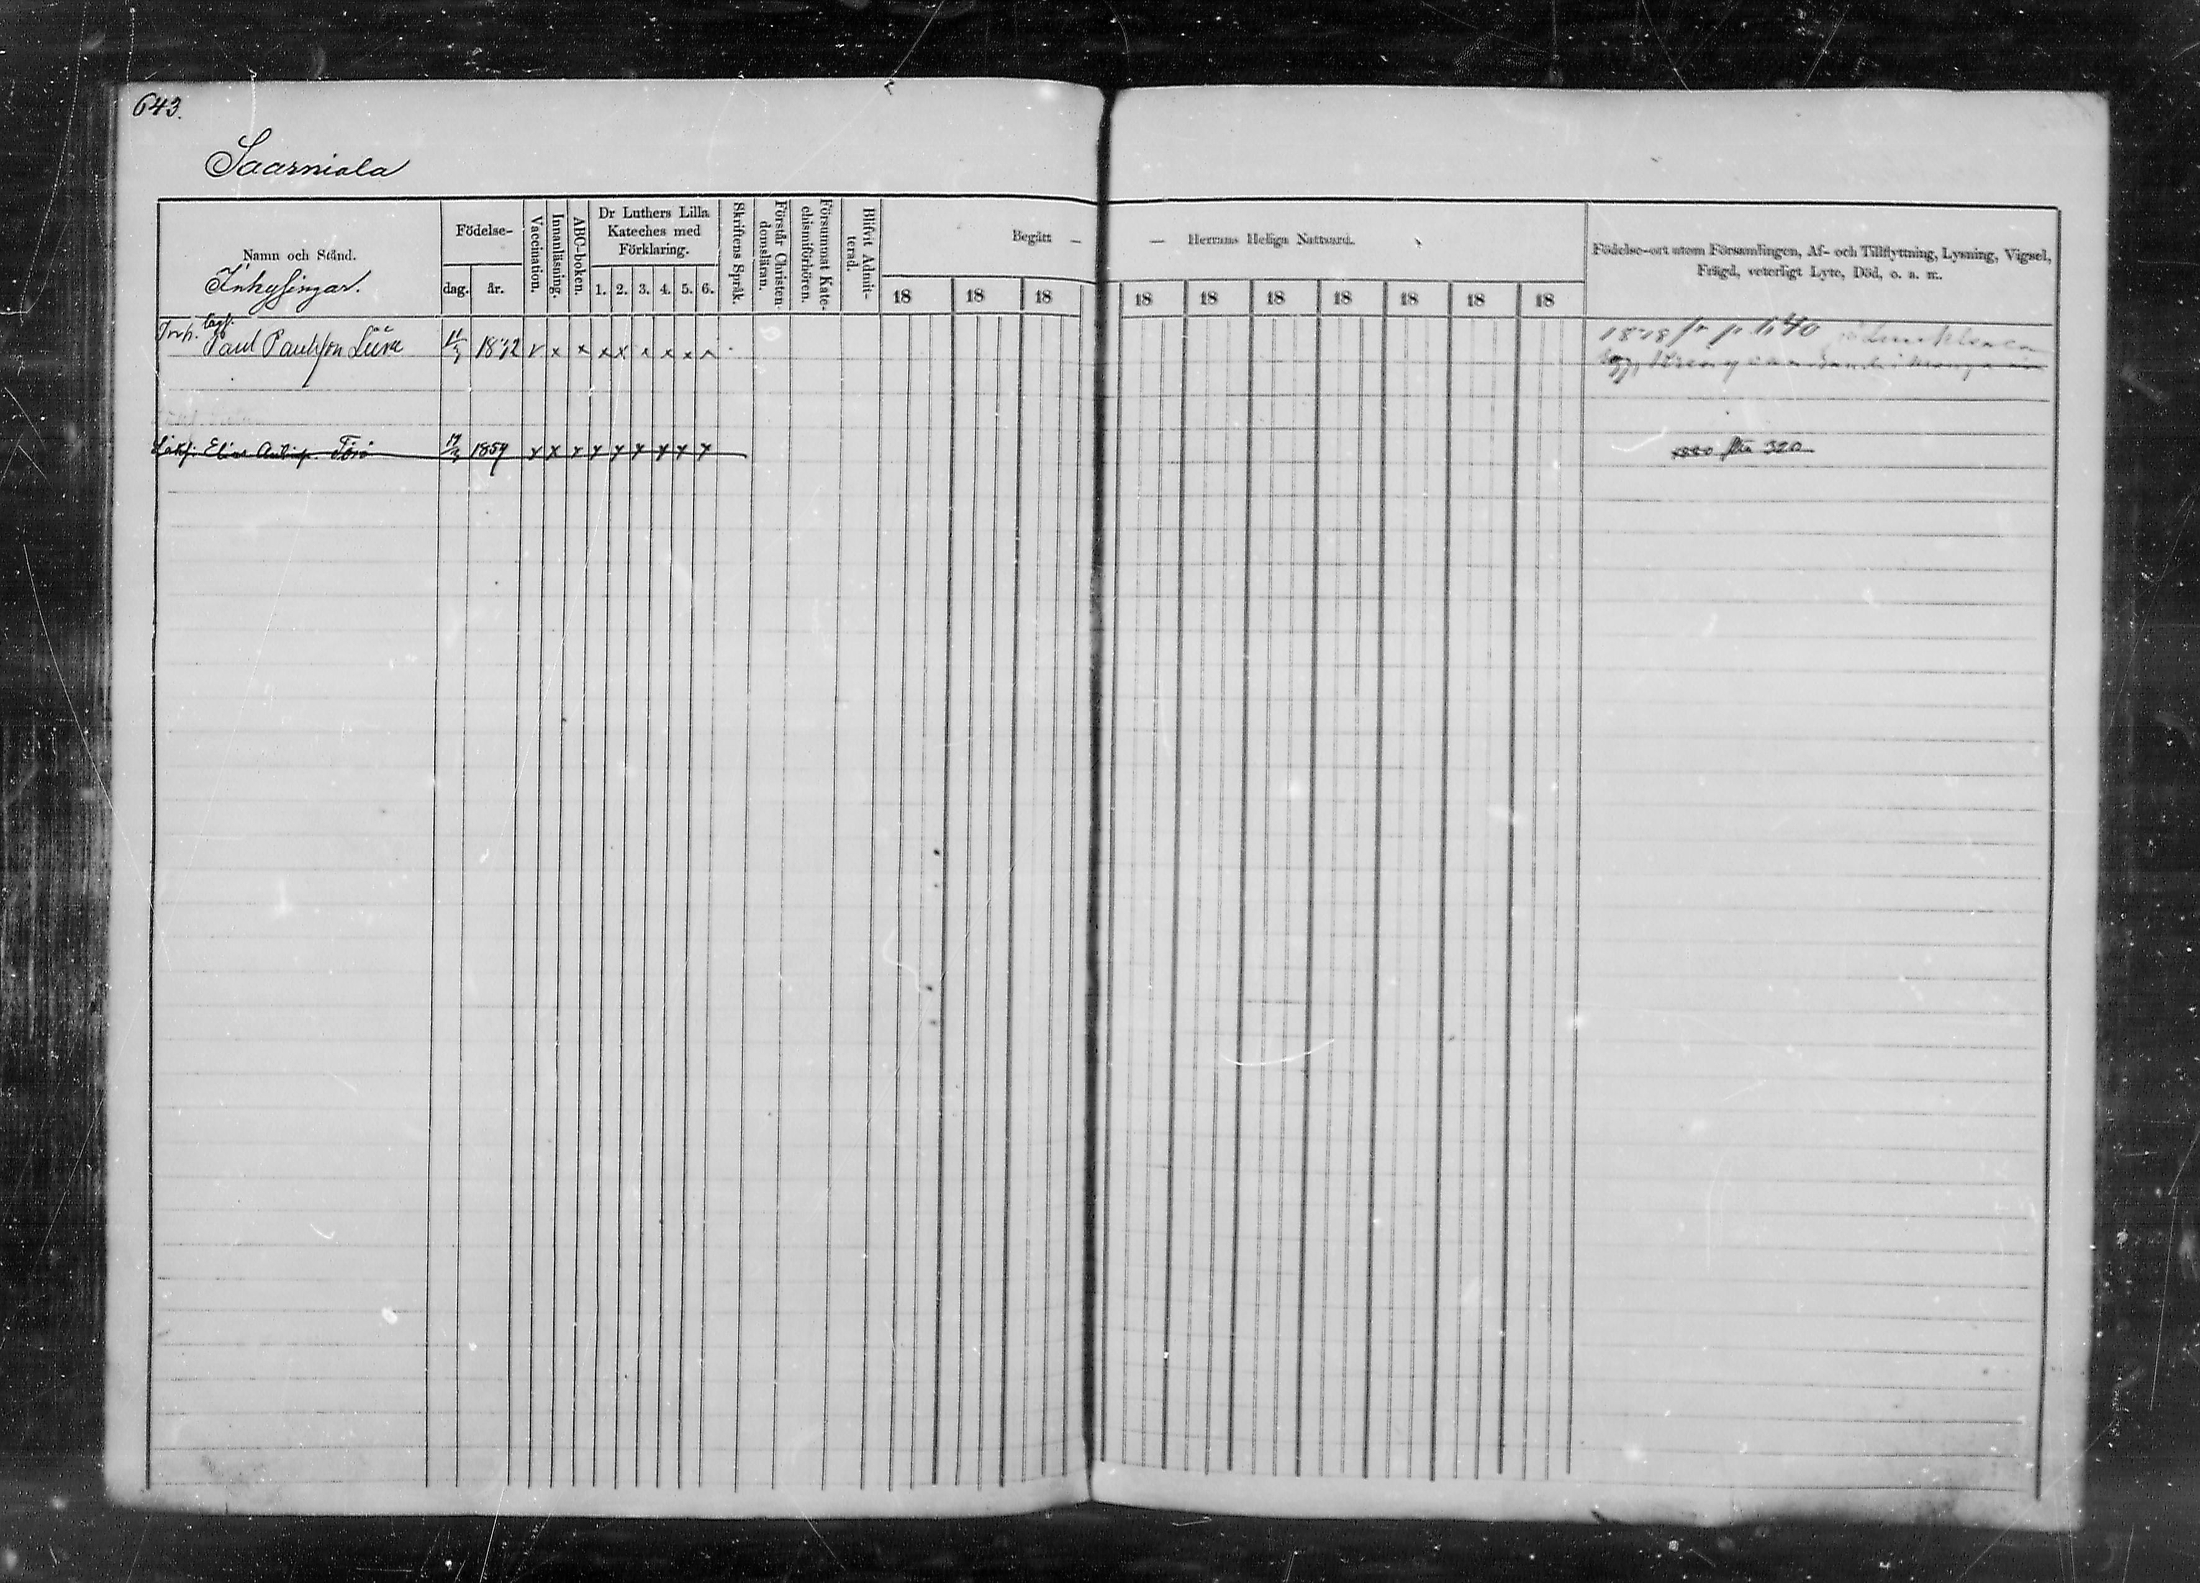 643.
Saarniala
Namn och Stånd.
Inhysingar.
Födelse-
dag.
år.
Vaccination.
Innanläsning.
ABC-boken.
Dr Luthers Lilla
Kateches med
Förklaring.
1. 2. 3. 4. 5. 6.
Skriftens Språk.
Förstår Christen-
domsläran.
Försummat Kate-
chismiförhören.
Blifvit Admit-
terad.
Begått —
— Herrans Heliga Nattvard.
18 18 18 18 18 18 18 18 18 18
Födelse-ort utom Församlingen, Af- och Tillflyttning, Lysning, Vigsel,
Frägd, veterligt Lyte, Död, o. a. m.
Paul Paulsson 18 x x x x x x x x
Elias 1859 x x x x x x x x x 1880 från 320